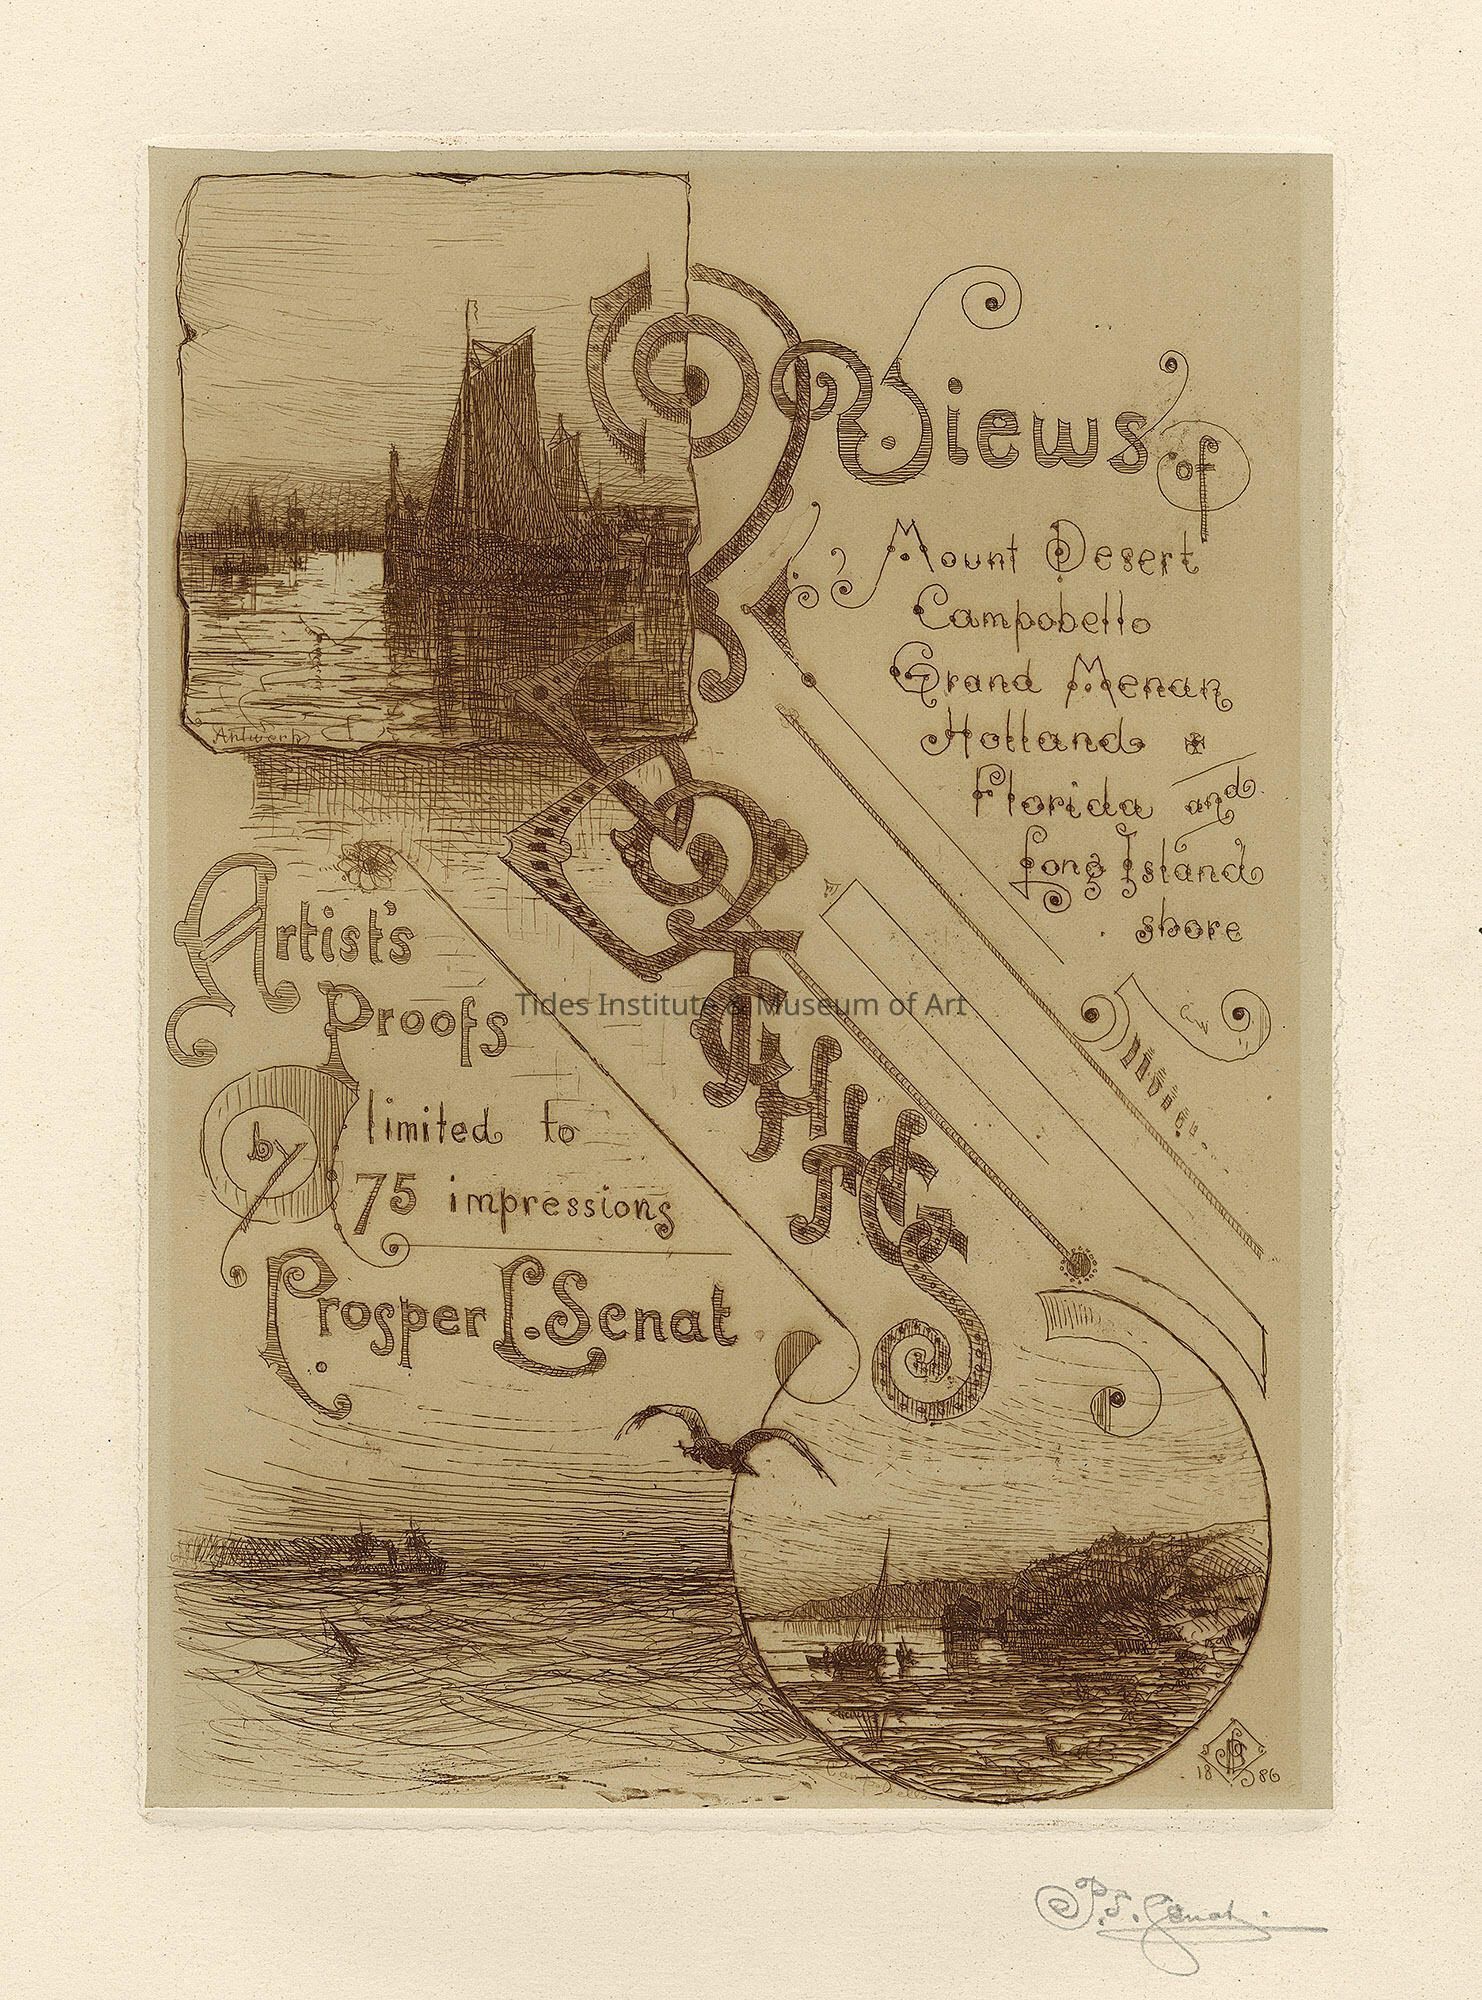 Views of
Mount Desert
Campobello
Grand Menan
Holland
Florida and
Long Island
shore
Antwerp
ETCHINGS
Artist's
Proofs
limited to
75 impressions
by
Prosper L. Senat
1886
P. L. Senat.
Tides Institute & Museum of Art